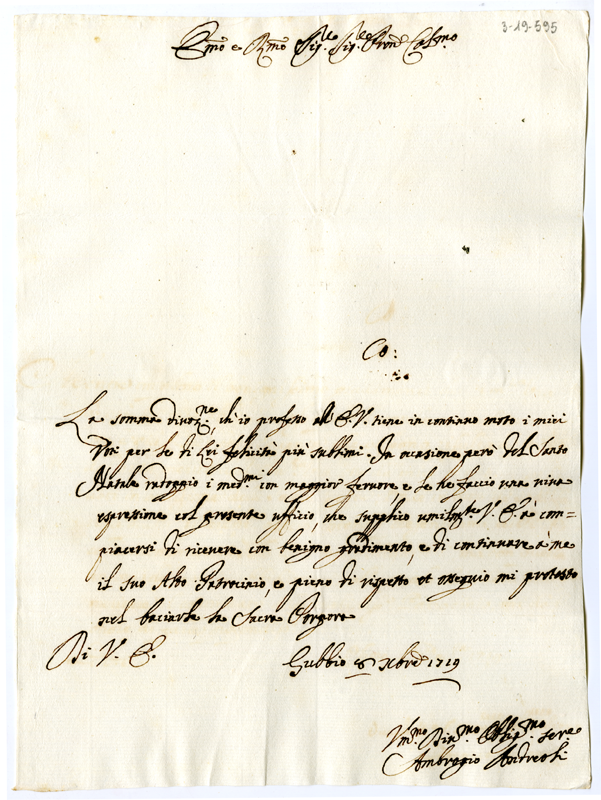 3-19-595
Emo e Rmo Sig.re Sig.re Pron Colmo
Co:
La somma divoz.ne, ch'io professo all'E.V. tiene in continuo moto i miei
Voti per le di Lei felicità più sublimi. In ocasione però del Santo
Natale radoppio i med.mi con maggior fervore e le ne faccio una viva
espressione col presente ufficio, che supplico umilm.te V. E.a à com=
piacersi di ricevere con benigno gradimento, e di continuare à me
il suo Alto Patrocinio, e pieno di rispetto et ossequio mi protesto
nel baciarle la Sacra Porpora
Di V. E.
Gubbio 8 Xbre 1719
Vm.mo Div.mo Oblig.mo Ser.e
Ambrogio Andreoli